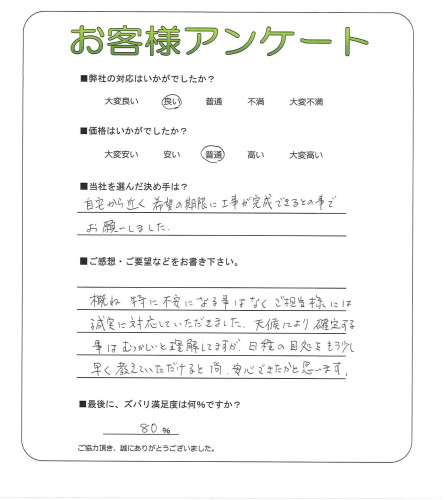 お客様アンケート
■弊社の対応はいかがでしたか?
大変良い 良い 普通 不満 大変不満
■価格はいかがでしたか?
大変安い 安い 普通 高い 大変高い
■当社を選んだ決め手は?
自宅から近く 希望の期限に工事が完成できるとの事で
お願いしました.
■ご感想・ご要望などをお書き下さい。
概ね 特に不安になる事はなく ご担当様には
誠実に対応していただきました. 天候により確定する
事はむづかしいと理解してますが、日程の目処をもう少し
早く教えていただけると尚、安心できたかと思います。
■最後に、ズバリ満足度は何%ですか?
80 %
ご協力頂き、誠にありがとうございました。